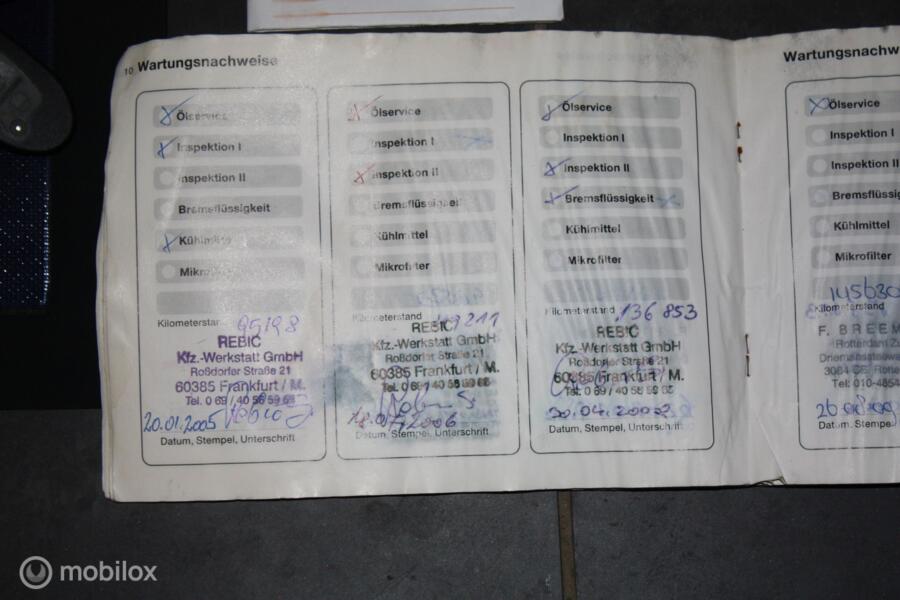 10 Wartungsnachweise
Ölservice
Inspektion I
Inspektion II
Bremsflüssigkeit
Kühlmittel
Mikrofilter
Kilometerstand 95198
REBIC
Kfz.-Werkstatt GmbH
Roßdorfer Straße 21
60385 Frankfurt / M.
Tel. 0 69 / 40 58 59 68
20.01.2005
Datum, Stempel, Unterschrift
Ölservice
Inspektion I
Inspektion II
Bremsflüssigkeit
Kühlmittel
Mikrofilter
Kilometerstand
REBIC
Kfz.-Werkstatt GmbH
Roßdorfer Straße 21
60385 Frankfurt / M.
Tel. 0 69 / 40 58 59 68
2006
Datum, Stempel, Unterschrift
Ölservice
Inspektion I
Inspektion II
Bremsflüssigkeit
Kühlmittel
Mikrofilter
Kilometerstand 136 853
REBIC
Kfz.-Werkstatt GmbH
Roßdorfer Straße 21
60385 Frankfurt / M.
Tel. 0 69 / 40 58 59 68
30.04.
Datum, Stempel, Unterschrift
Wartungsnachw
Ölservice
Inspektion I
Inspektion II
Bremsflüssigke
Kühlmittel
Mikrofilter
145630
Kilometerstand
F. BREEM
Rotterdam Zu
Tel: 010-4854
Datum, Stempe
mobilox